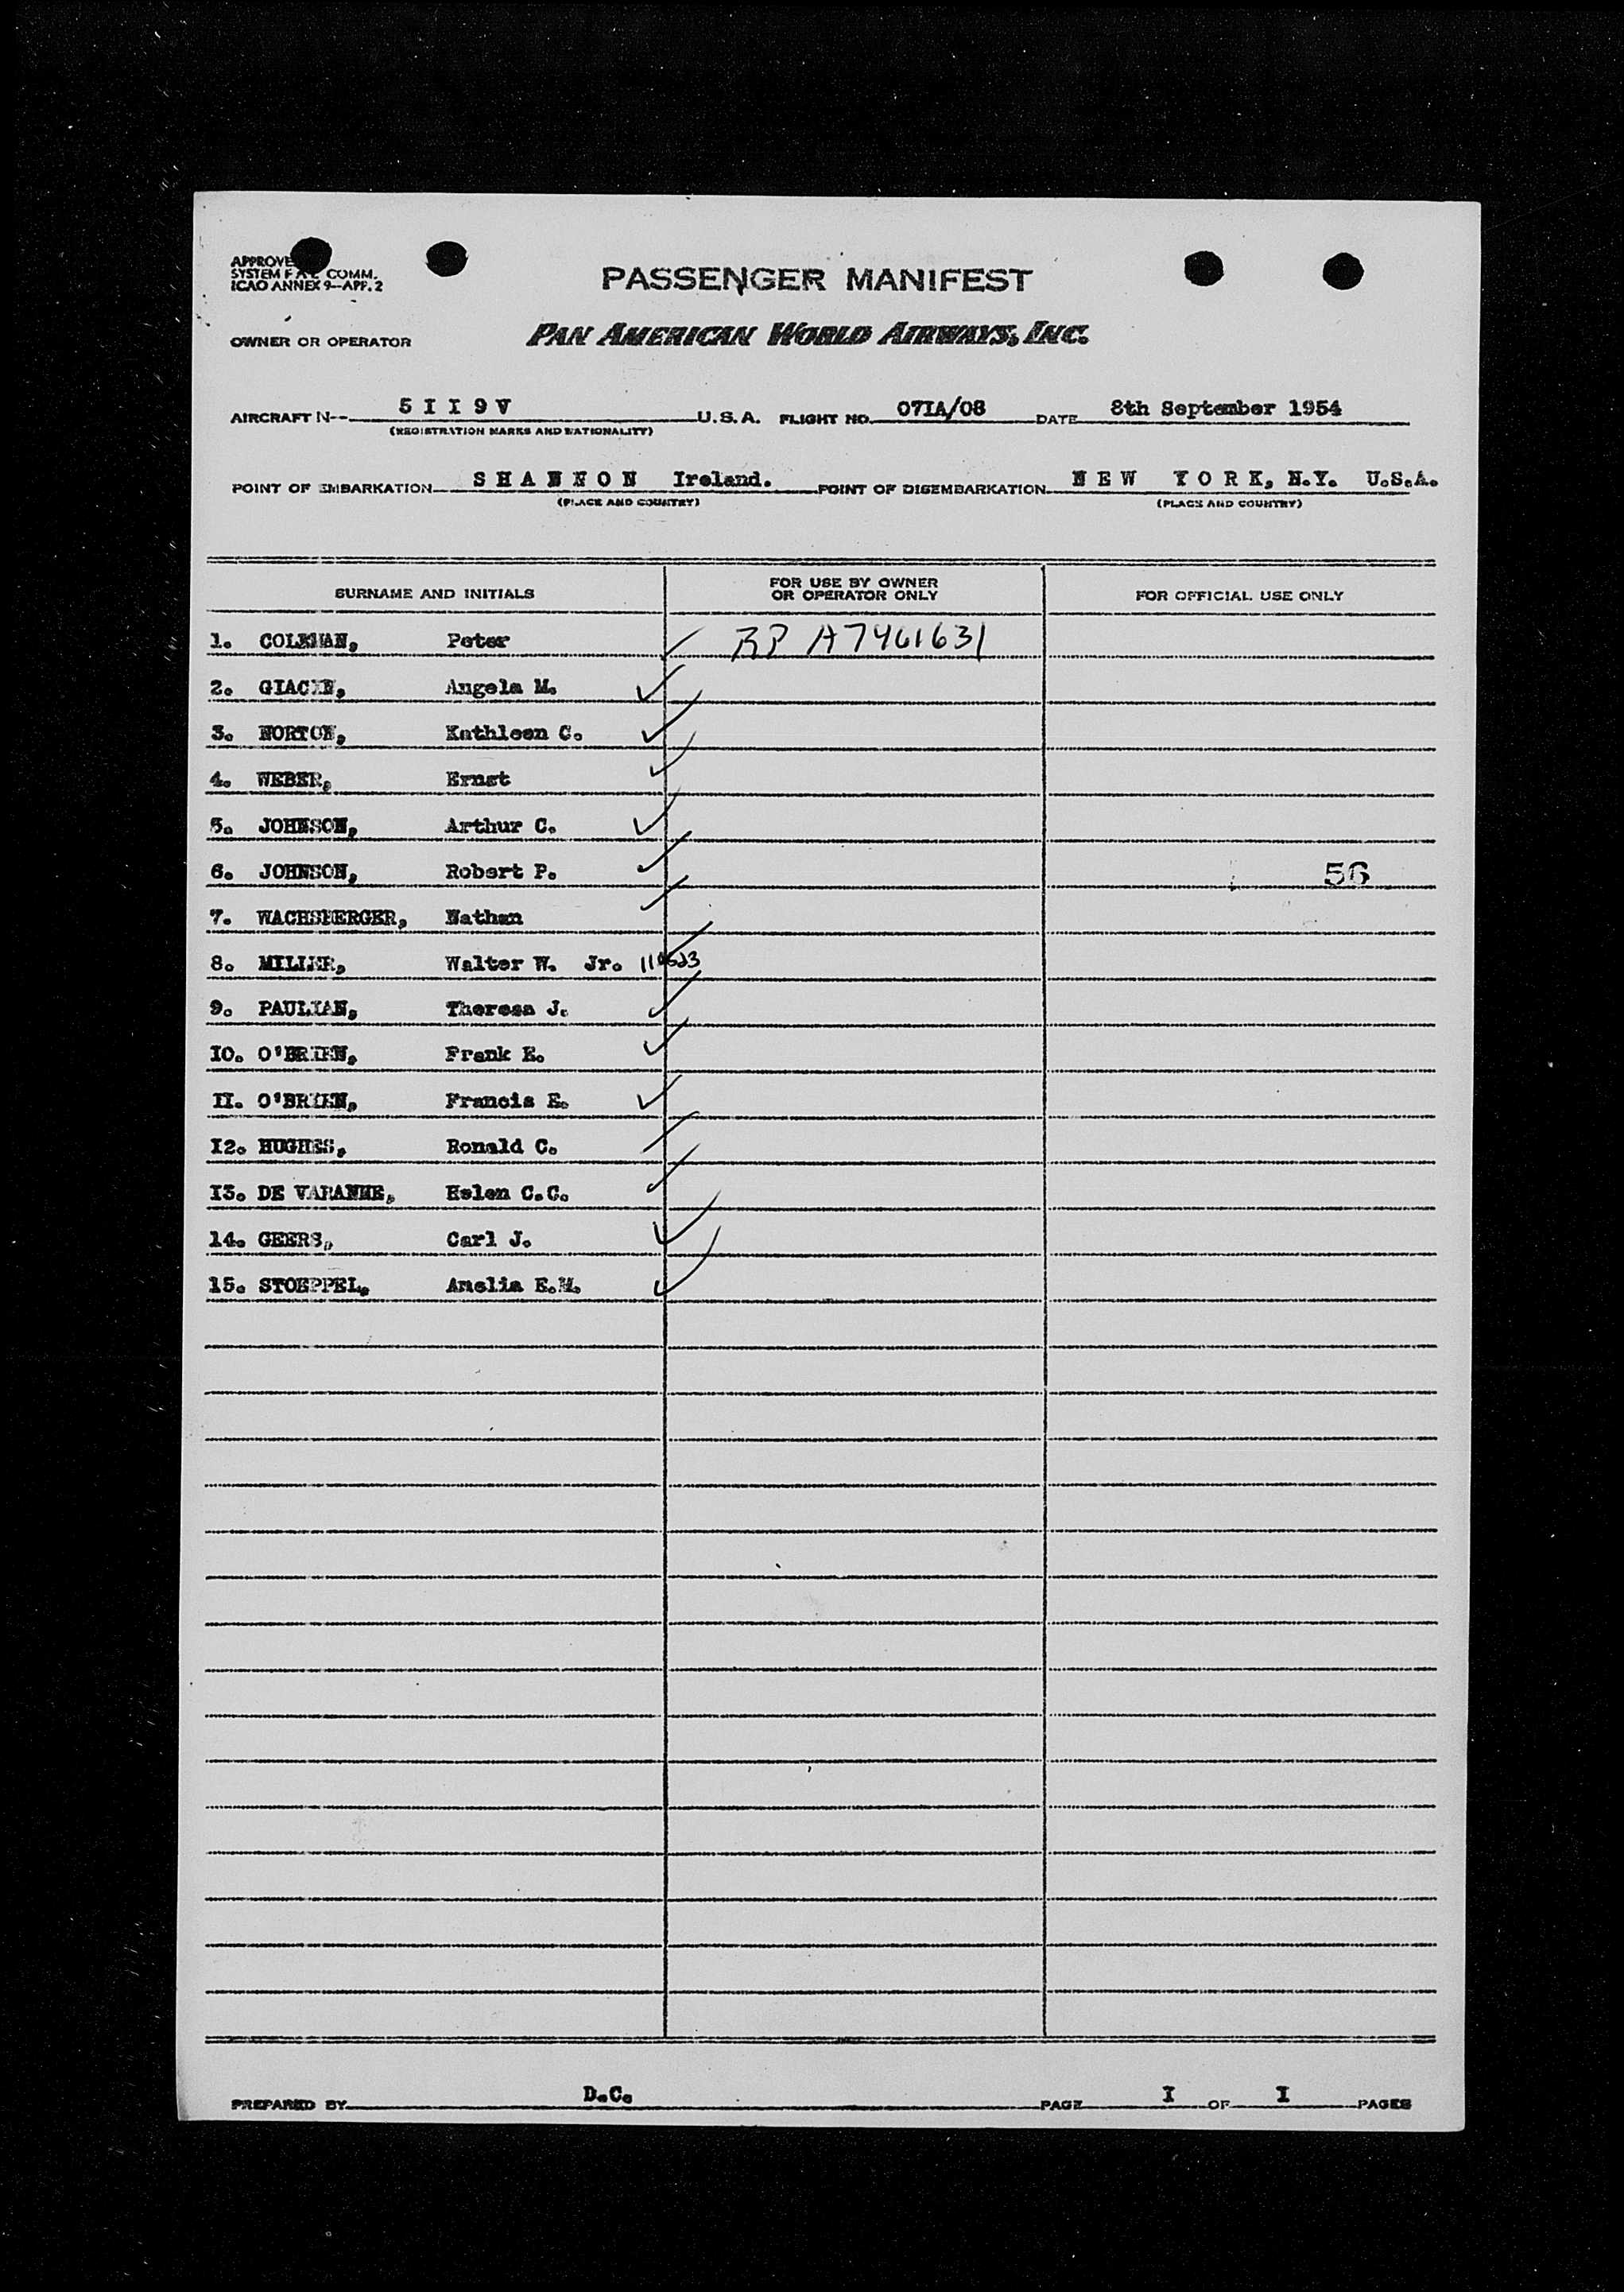 APPROVE
SYSTEM F A L COMM.
ICAO ANNEX 9—APP. 2
PASSENGER MANIFEST
OWNER OR OPERATOR
PAN AMERICAN WORLD AIRWAYS, INC.
AIRCRAFT N-- 5 I I 9 V U. S. A. FLIGHT NO. 07IA/08 DATE 8th September 1954
(REGISTRATION MARKS AND NATIONALITY)
POINT OF EMBARKATION S H A N N O N Ireland. POINT OF DISEMBARKATION N E W Y O R K, N.Y. U.S.A.
(PLACE AND COUNTRY) (PLACE AND COUNTRY)
SURNAME AND INITIALS FOR USE BY OWNER OR OPERATOR ONLY FOR OFFICIAL USE ONLY
1. COLEMAN, Peter ✓ RP A7461631
2. Angela M. ✓
3. NORTON, Kathleen C. ✓
4. WEBER, Ernst ✓
5. JOHNSON, Arthur C. ✓
6. JOHNSON, Robert P. ✓ 56
7. WACHSBERGER, Nathan ✓
8. MILLER, Walter W. Jr. ✓
9. PAULIAN, Theresa J. ✓
I0. O'BRIEN, Frank E. ✓
II. O'BRIEN, Francis E. ✓
I2. HUGHES, Ronald C. ✓
I3. DE VARANNE, Helen C.C. ✓
14. GEERS, Carl J. ✓
15. STOEPPEL, Amelia E.M. ✓
PREPARED BY D.C. PAGE I OF I PAGES